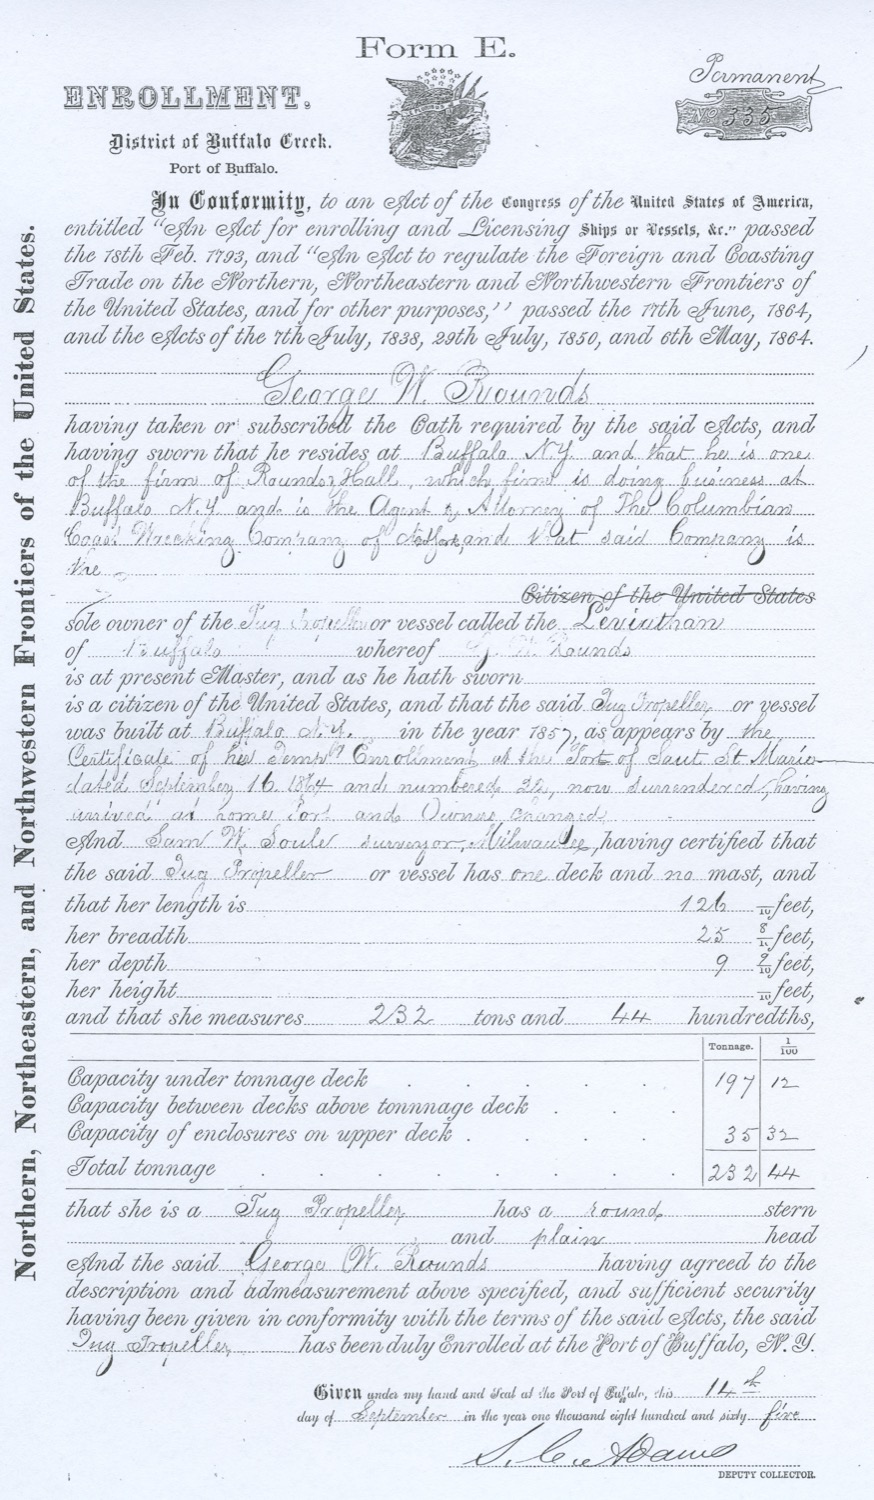 Form E.
Permanent
ENROLLMENT.
No 335
District of Buffalo Creek.
Port of Buffalo.
Northern, Northeastern, and Northwestern Frontiers of the United States.
In Conformity, to an Act of the Congress of the United States of America,
entitled "An Act for enrolling and Licensing Ships or Vessels, &c." passed
the 18th Feb. 1793, and "An Act to regulate the Foreign and Coasting
Trade on the Northern, Northeastern and Northwestern Frontiers of
the United States, and for other purposes,'' passed the 17th June, 1864,
and the Acts of the 7th July, 1838, 29th July, 1850, and 6th May, 1864.
George W. Rounds
having taken or subscribed the Oath required by the said Acts, and
having sworn that he resides at Buffalo N.Y. and that he is one
of the firm of Rounds & Hall, which firm is doing business at
Buffalo N.Y. and is the Agent & Attorney of The Columbian
Coast Wrecking Company of and that said Company is
the
Citizen of the United States
sole owner of the Tug Propeller or vessel called the Leviathan
of Buffalo whereof G. W. Rounds
is at present Master, and as he hath sworn
is a citizen of the United States, and that the said Tug Propeller or vessel
was built at Buffalo N.Y. in the year 1857, as appears by the
Certificate of her Tempy Enrollment at the Port of Saut St. Marie
dated September 16 1864 and numbered 32, now surrendered, having
arrived at home Port and Owners changed
And Sam W. Soule surveyor, Milwaukee, having certified that
the said Tug Propeller or vessel has one deck and no mast, and
that her length is 126 /10 feet,
her breadth 25 8/10 feet,
her depth 9 9/10 feet,
her height /10 feet,
and that she measures 232 tons and 44 hundredths,
Tonnage. 1/100
Capacity under tonnage deck . . . . . 197 12
Capacity between decks above tonnnage deck . . .
Capacity of enclosures on upper deck . . . . 35 32
Total tonnage . . . . . . . 232 44
that she is a Tug Propeller has a round stern
and plain head
And the said George W. Rounds having agreed to the
description and admeasurement above specified, and sufficient security
having been given in conformity with the terms of the said Acts, the said
Tug Propeller has been duly Enrolled at the Port of Buffalo, N. Y.
Given under my hand and Seal at the Port of Buffalo, this 14th
day of September in the year one thousand eight hundred and sixty five
Adams
DEPUTY COLLECTOR.